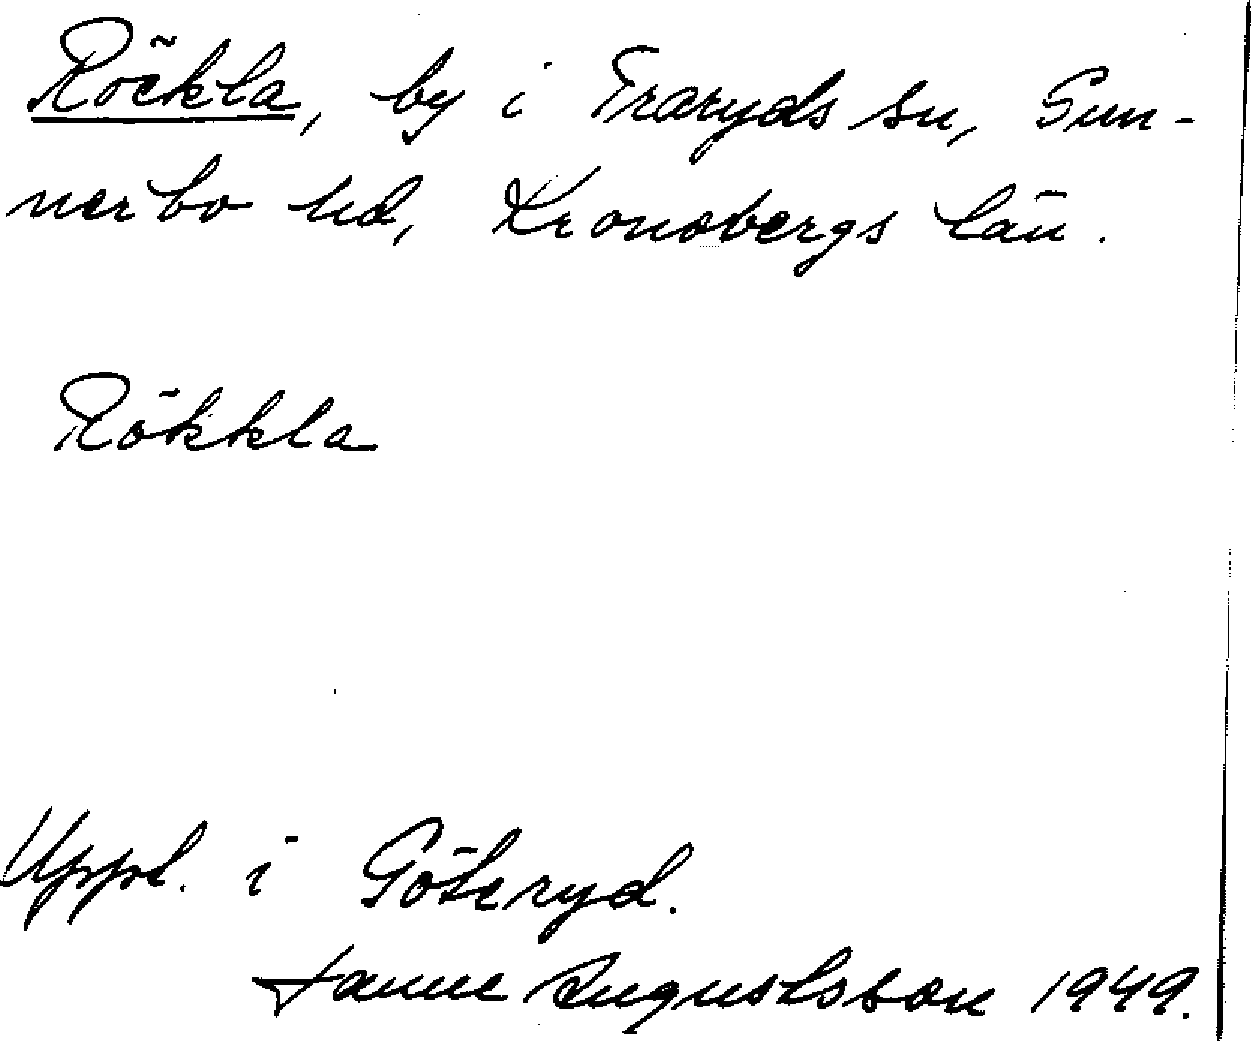 Röckla, by i Traryds sn, Sun-
nerbo hd, Kronobergs län.
Rökkla
Uppt. i Göteryd.
Janne Augustsson 1949.